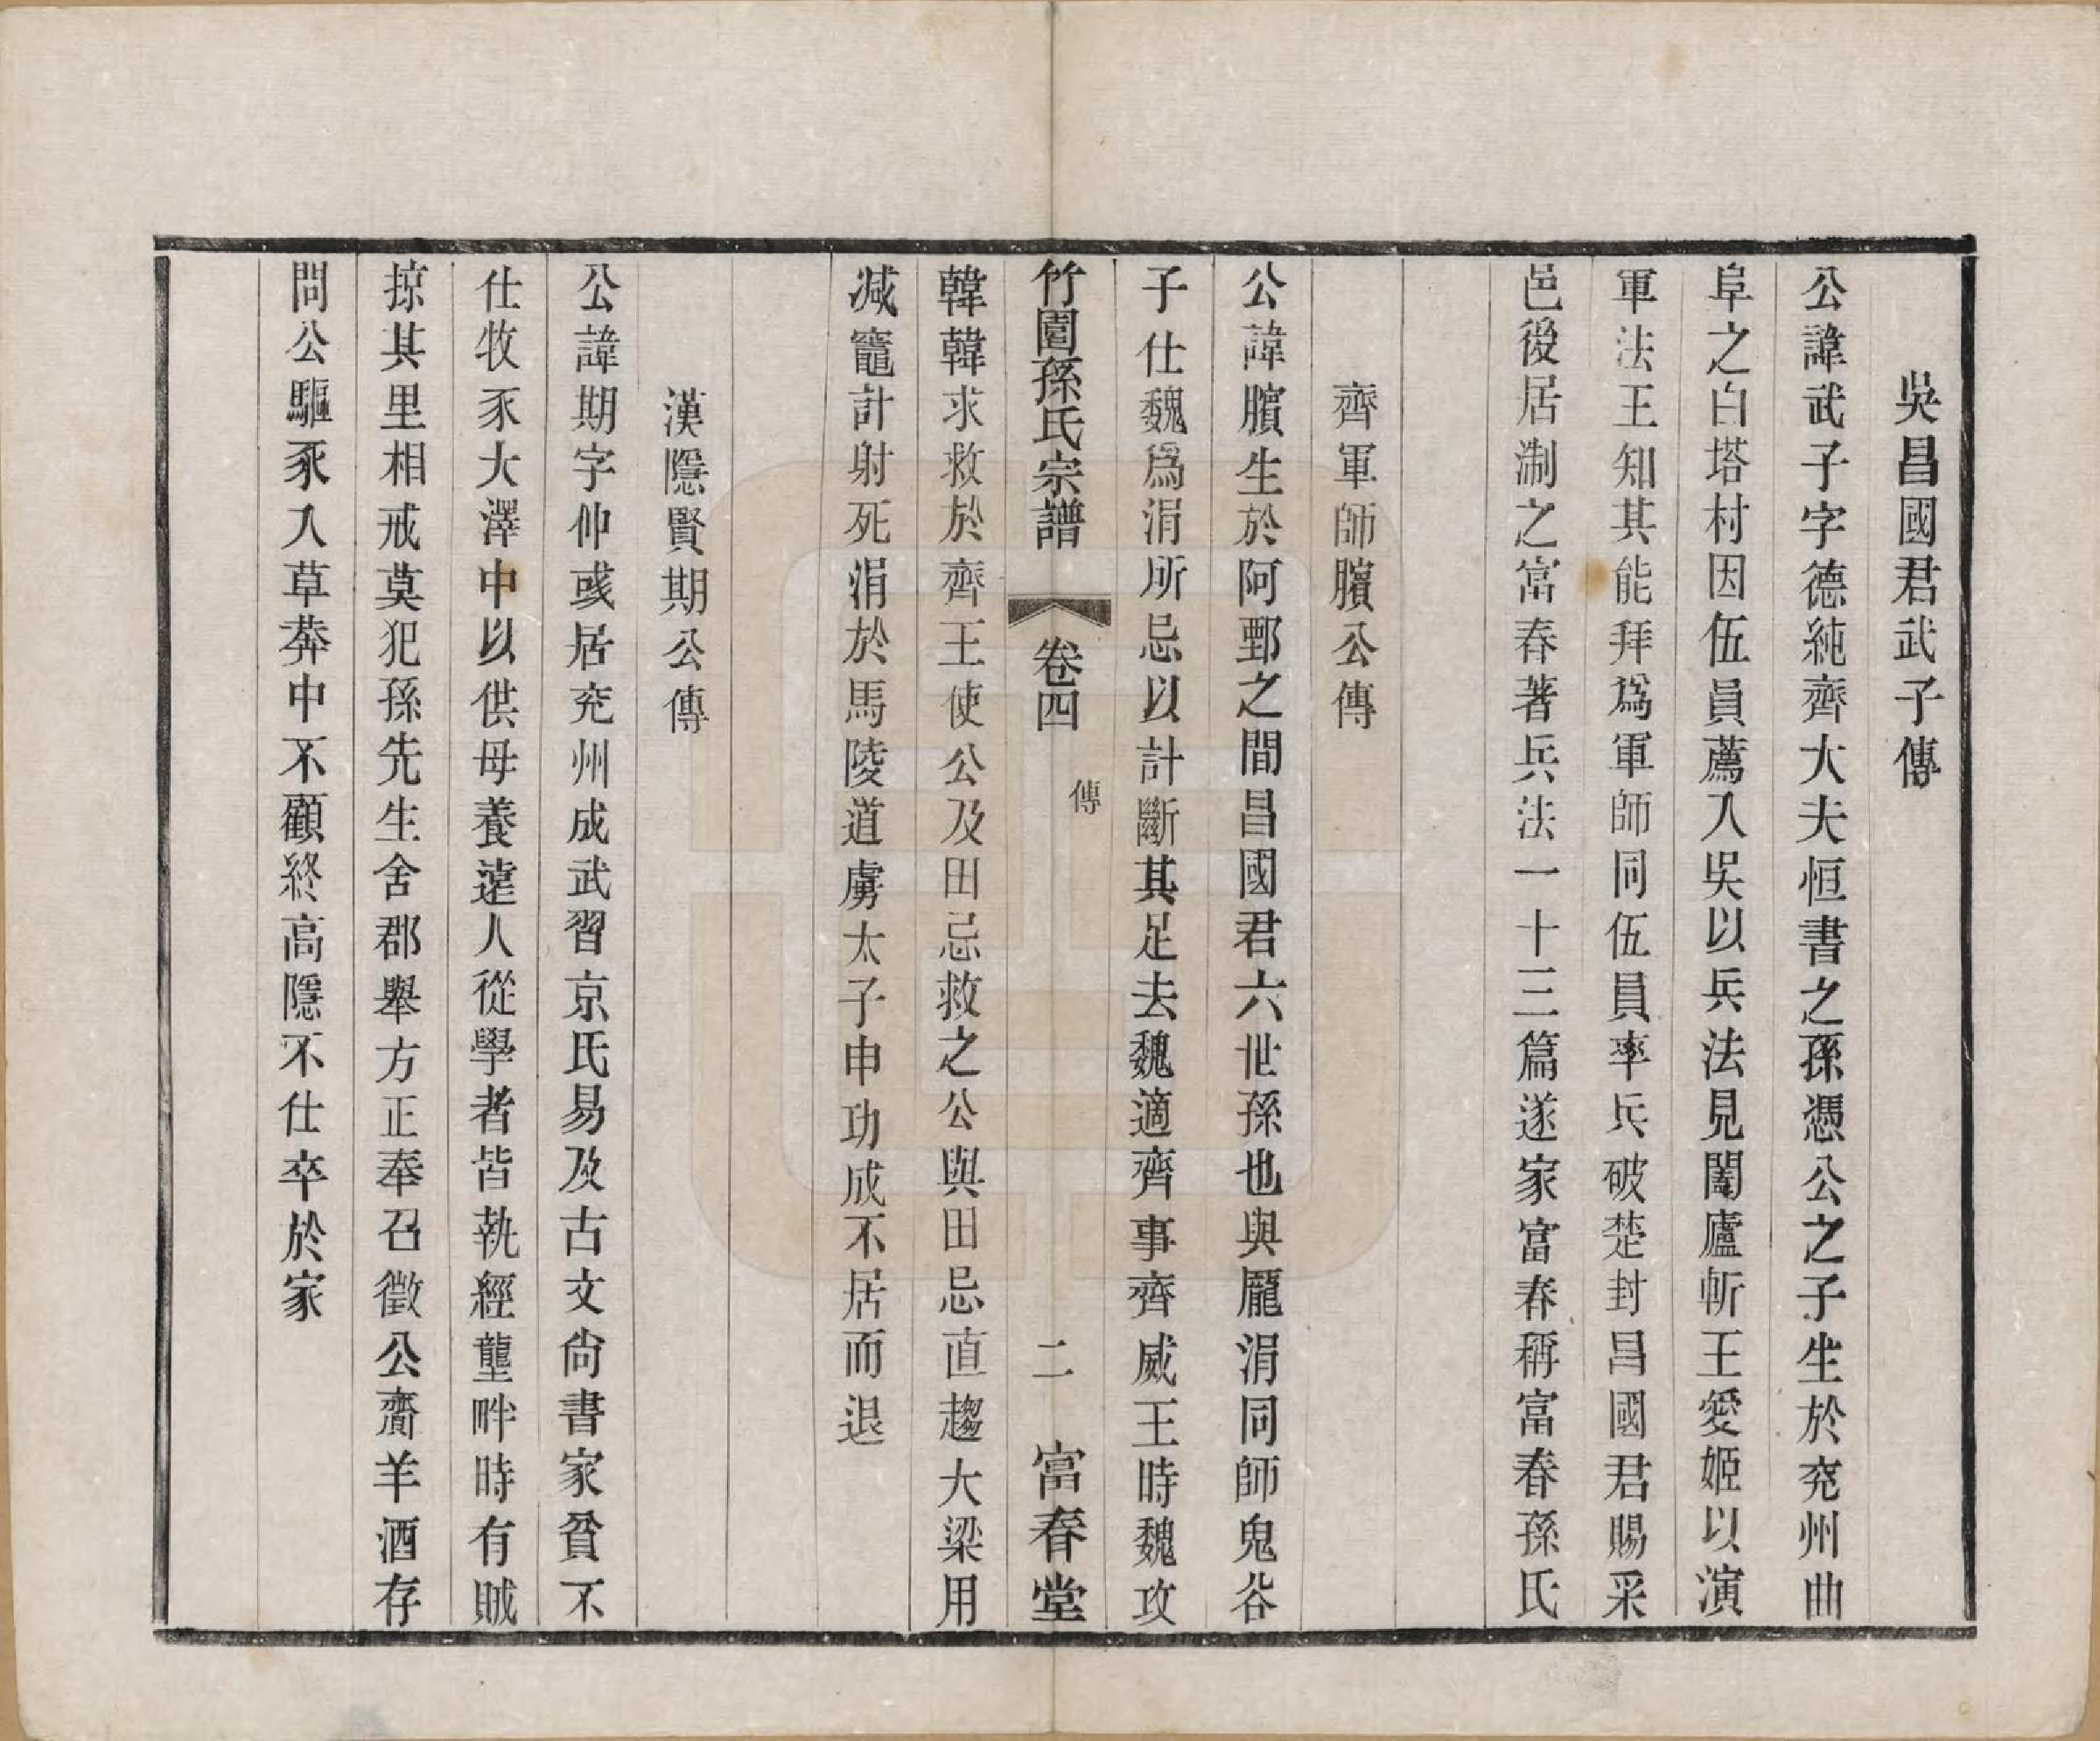 吳昌國君武子傳
公諱武子字德純齊大夫恒書之孫憑公之子生於兖州曲
阜之白塔村因伍員薦入吳以兵法見闔廬斬王愛姬以演
軍法王知其能拜爲軍師同伍員率兵破楚封昌國君賜采
邑後居淛之富春著兵法一十三篇遂家富春稱富春孫氏
齊軍師臏公傳
公諱臏生於阿鄄之間昌國君六世孫也與龎涓同師鬼谷
子仕魏爲涓所忌以計斷其足去魏適齊事齊威王時魏攻
竹園孫氏宗譜 卷四 傳 二 富春堂
韓韓求救於齊王使公及田忌救之公與田忌直趨大梁用
减竈計射死涓於馬陵道虜太子申功成不居而退
漢隱賢期公傳
公諱期字仲彧居兖州成武習京氏易及古文尙書家貧不
仕牧豕大澤中以供母養遠人從學者皆執經壟畔時有賊
掠其里相戒莫犯孫先生舍郡舉方正奉召徵公齎羊酒存
問公驅豕入草莽中不顧終高隱不仕卒於家